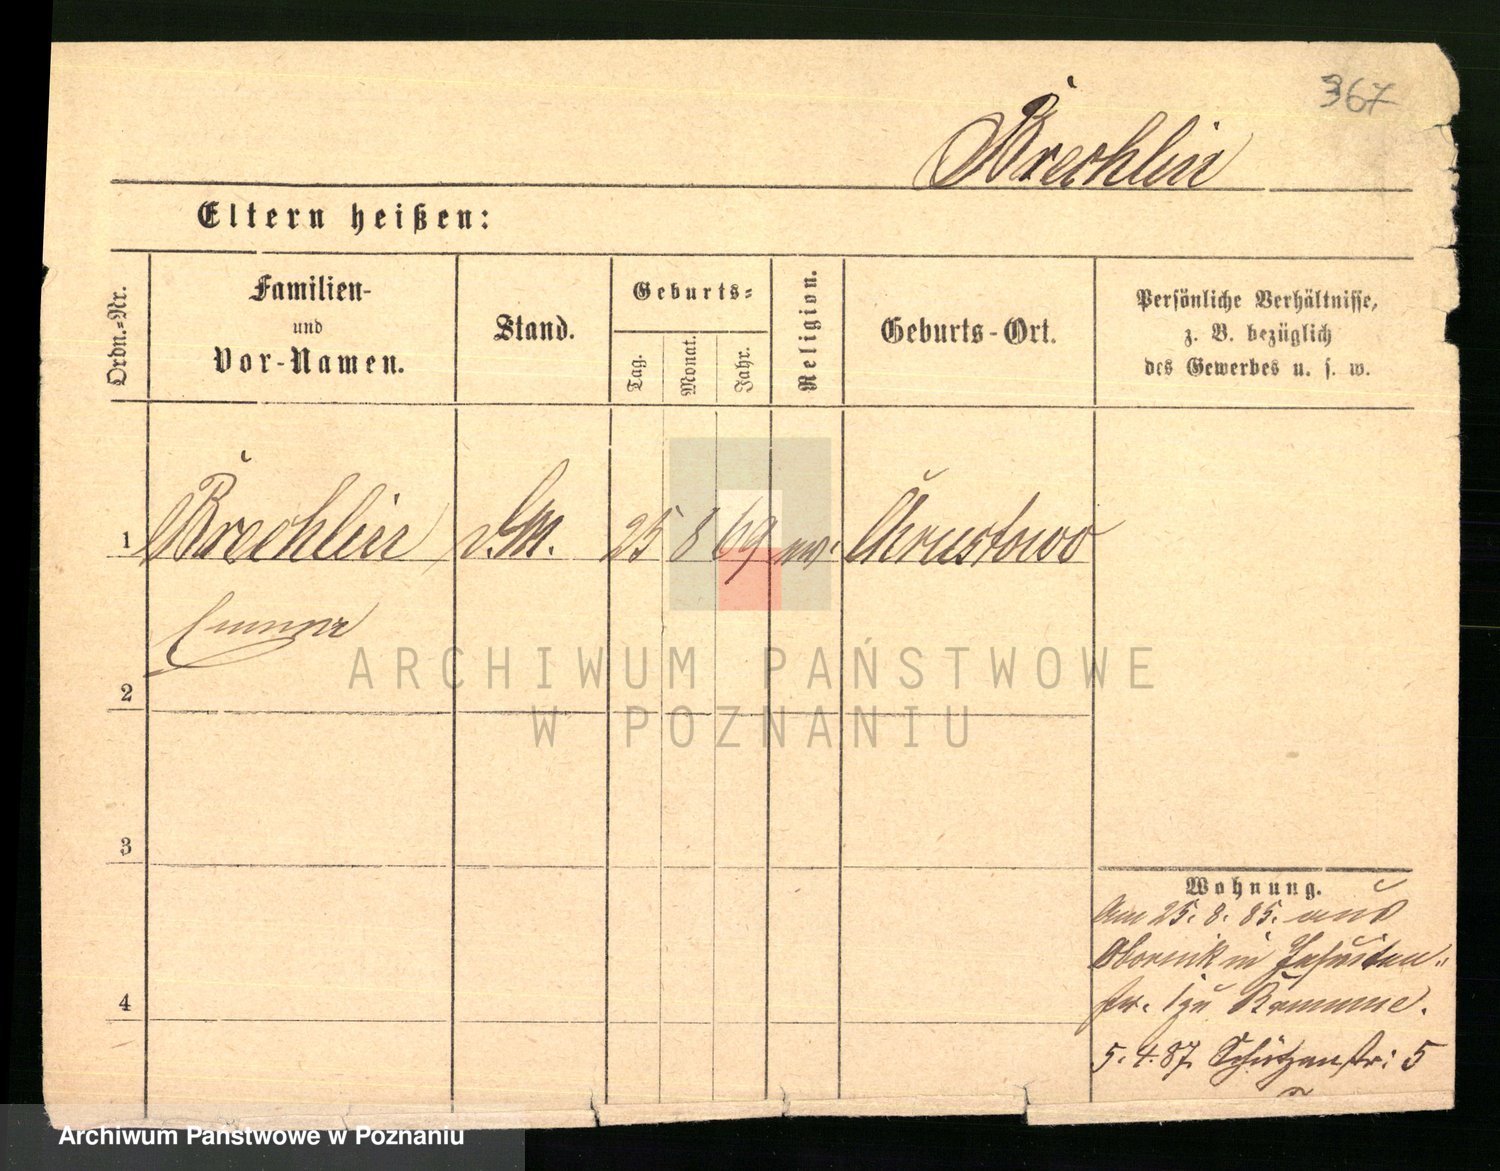 367
Brechlin
Eltern heißen:
Ordn.-Nr.
Familien-
und
Vor-Namen.
Stand.
Geburts-
Tag.
Monat.
Jahr.
Religion.
Geburts-Ort.
Persönliche Verhältnisse,
z. B. bezüglich
des Gewerbes u. s. w.
1 Brechlin 25 8 69 ev. Chrustowo
Emma
2
3
4
Wohnung.
Am 25. 8. 85. aus
Obornik in Jesuiten-
str. 1 zu Ramme.
5. 4. 87. Schützenstr: 5
ARCHIWUM PAŃSTWOWE
W POZNANIU
Archiwum Państwowe w Poznaniu